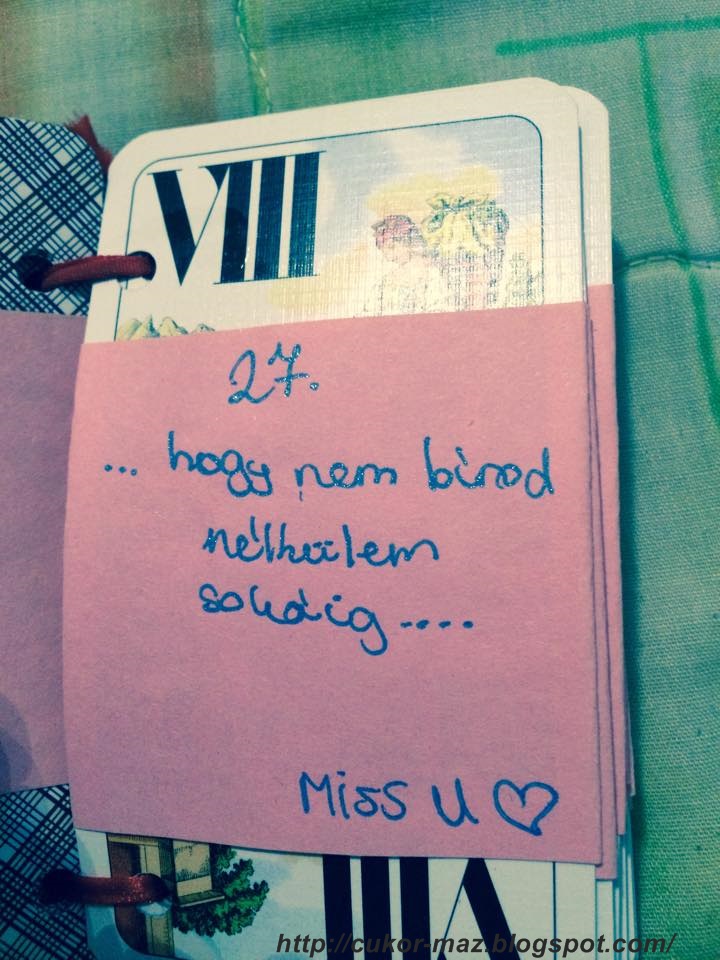 VIII
27.
... hogy nem bírod
nélkülem
sokáig....
Miss U ♡
VIII
http://cukor-maz.blogspot.com/